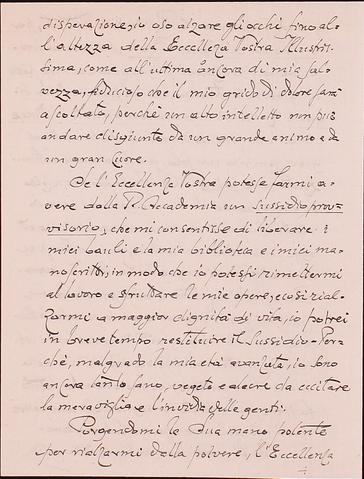 disperazione, io oso alzare gli occhi fino al-
l'altezza della Eccellenza Vostra Illustris-
sima, come all'ultima àncora di mia sal-
vezza, fiducioso che il mio grido di dolore sarà
ascoltato, perchè un alto intelletto non può
andare disgiunto da un grande animo e da
un gran cuore.
Se l'Eccellenza Vostra potesse farmi a-
vere dalla R. Accademia un sussidio prov-
visorio, che mi consentisse di liberare i
miei bauli e la mia biblioteca e i miei ma-
noscritti, in modo che io potessi rimettermi
al lavoro e sfruttare le mie opere, e così rial-
zarmi a maggior dignità di vita, io potrei
in breve tempo restituire il sussidio. Per-
chè, malgrado la mia età avanzata, io sono
ancora tanto sano, vegeto e alacre da eccitare
la meraviglia e l'invidia delle genti.
Porgendomi la Sua mano potente
per rialzarmi dalla polvere, l'Eccellenza